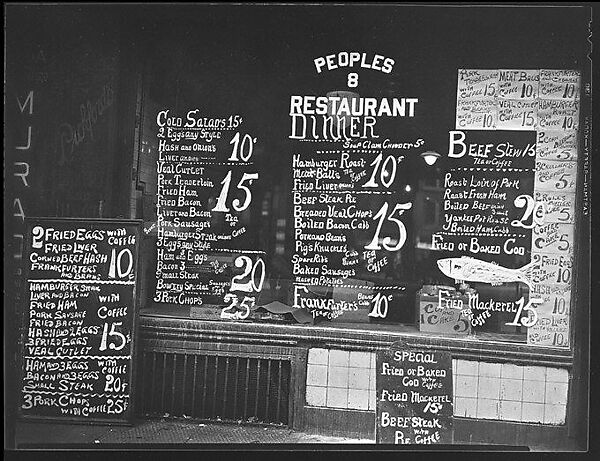 PEOPLES
8
RESTAURANT
DINNER
SOUP CLAM CHOWDER 5¢
COLD SALADS 15¢
2 EGGS ANY STYLE
HASH AND ONIONS
LIVER
10¢
VEAL CUTLET
PORK TENDERLOIN
FRIED HAM
FRIED BACON
LIVER AND BACON
PORK SAUSAGES
HAMBURGER STEAK
3 EGGS ANY STYLE
15¢
TEA OR COFFEE
HAM AND EGGS
BACON 3
SMALL STEAK
20
BOWERY SPECIAL
3 PORK CHOPS
25¢
HAMBURGER ROAST
MEAT BALLS
FRIED LIVER
10¢
TEA OR COFFEE
BEEFSTEAK PIE
BREADED VEAL CHOPS
BOILED BACON CABB
PORK AND BEANS
PIGS KNUCKLES
SPARE RIBS
BAKED SAUSAGES
MASHED POTATOES
15¢
TEA OR COFFEE
FRANKFURTERS
10¢
TEA OR COFFEE
BEEF STEW 15
TEA OR COFFEE
ROAST LOIN OF PORK
ROAST FRESH HAM
BOILED BEEF
YANKEE POT ROAST
FRIED OR BAKED COD
FRIED MACKEREL 15¢
TEA OR COFFEE
MEAT BALLS
10¢
VEAL CUTLET
15¢
HAMBURGER
2 FRIED EGGS WITH COFFEE
FRIED LIVER
CORNED BEEF HASH
FRANKFURTERS
AND BEANS
10¢
HAMBURGER STEAK
LIVER AND BACON
FRIED HAM
PORK SAUSAGE
FRIED BACON
HASH AND 2 EGGS
3 FRIED EGGS
VEAL CUTLET
WITH COFFEE
15¢
HAM AND 2 EGGS
BACON AND 3 EGGS
SMALL STEAK
WITH COFFEE
20¢
3 PORK CHOPS
WITH COFFEE 25¢
SPECIAL
FRIED OR BAKED
COD WITH COFFEE
FRIED MACKEREL
15¢
BEEF STEAK
PIE WITH COFFEE